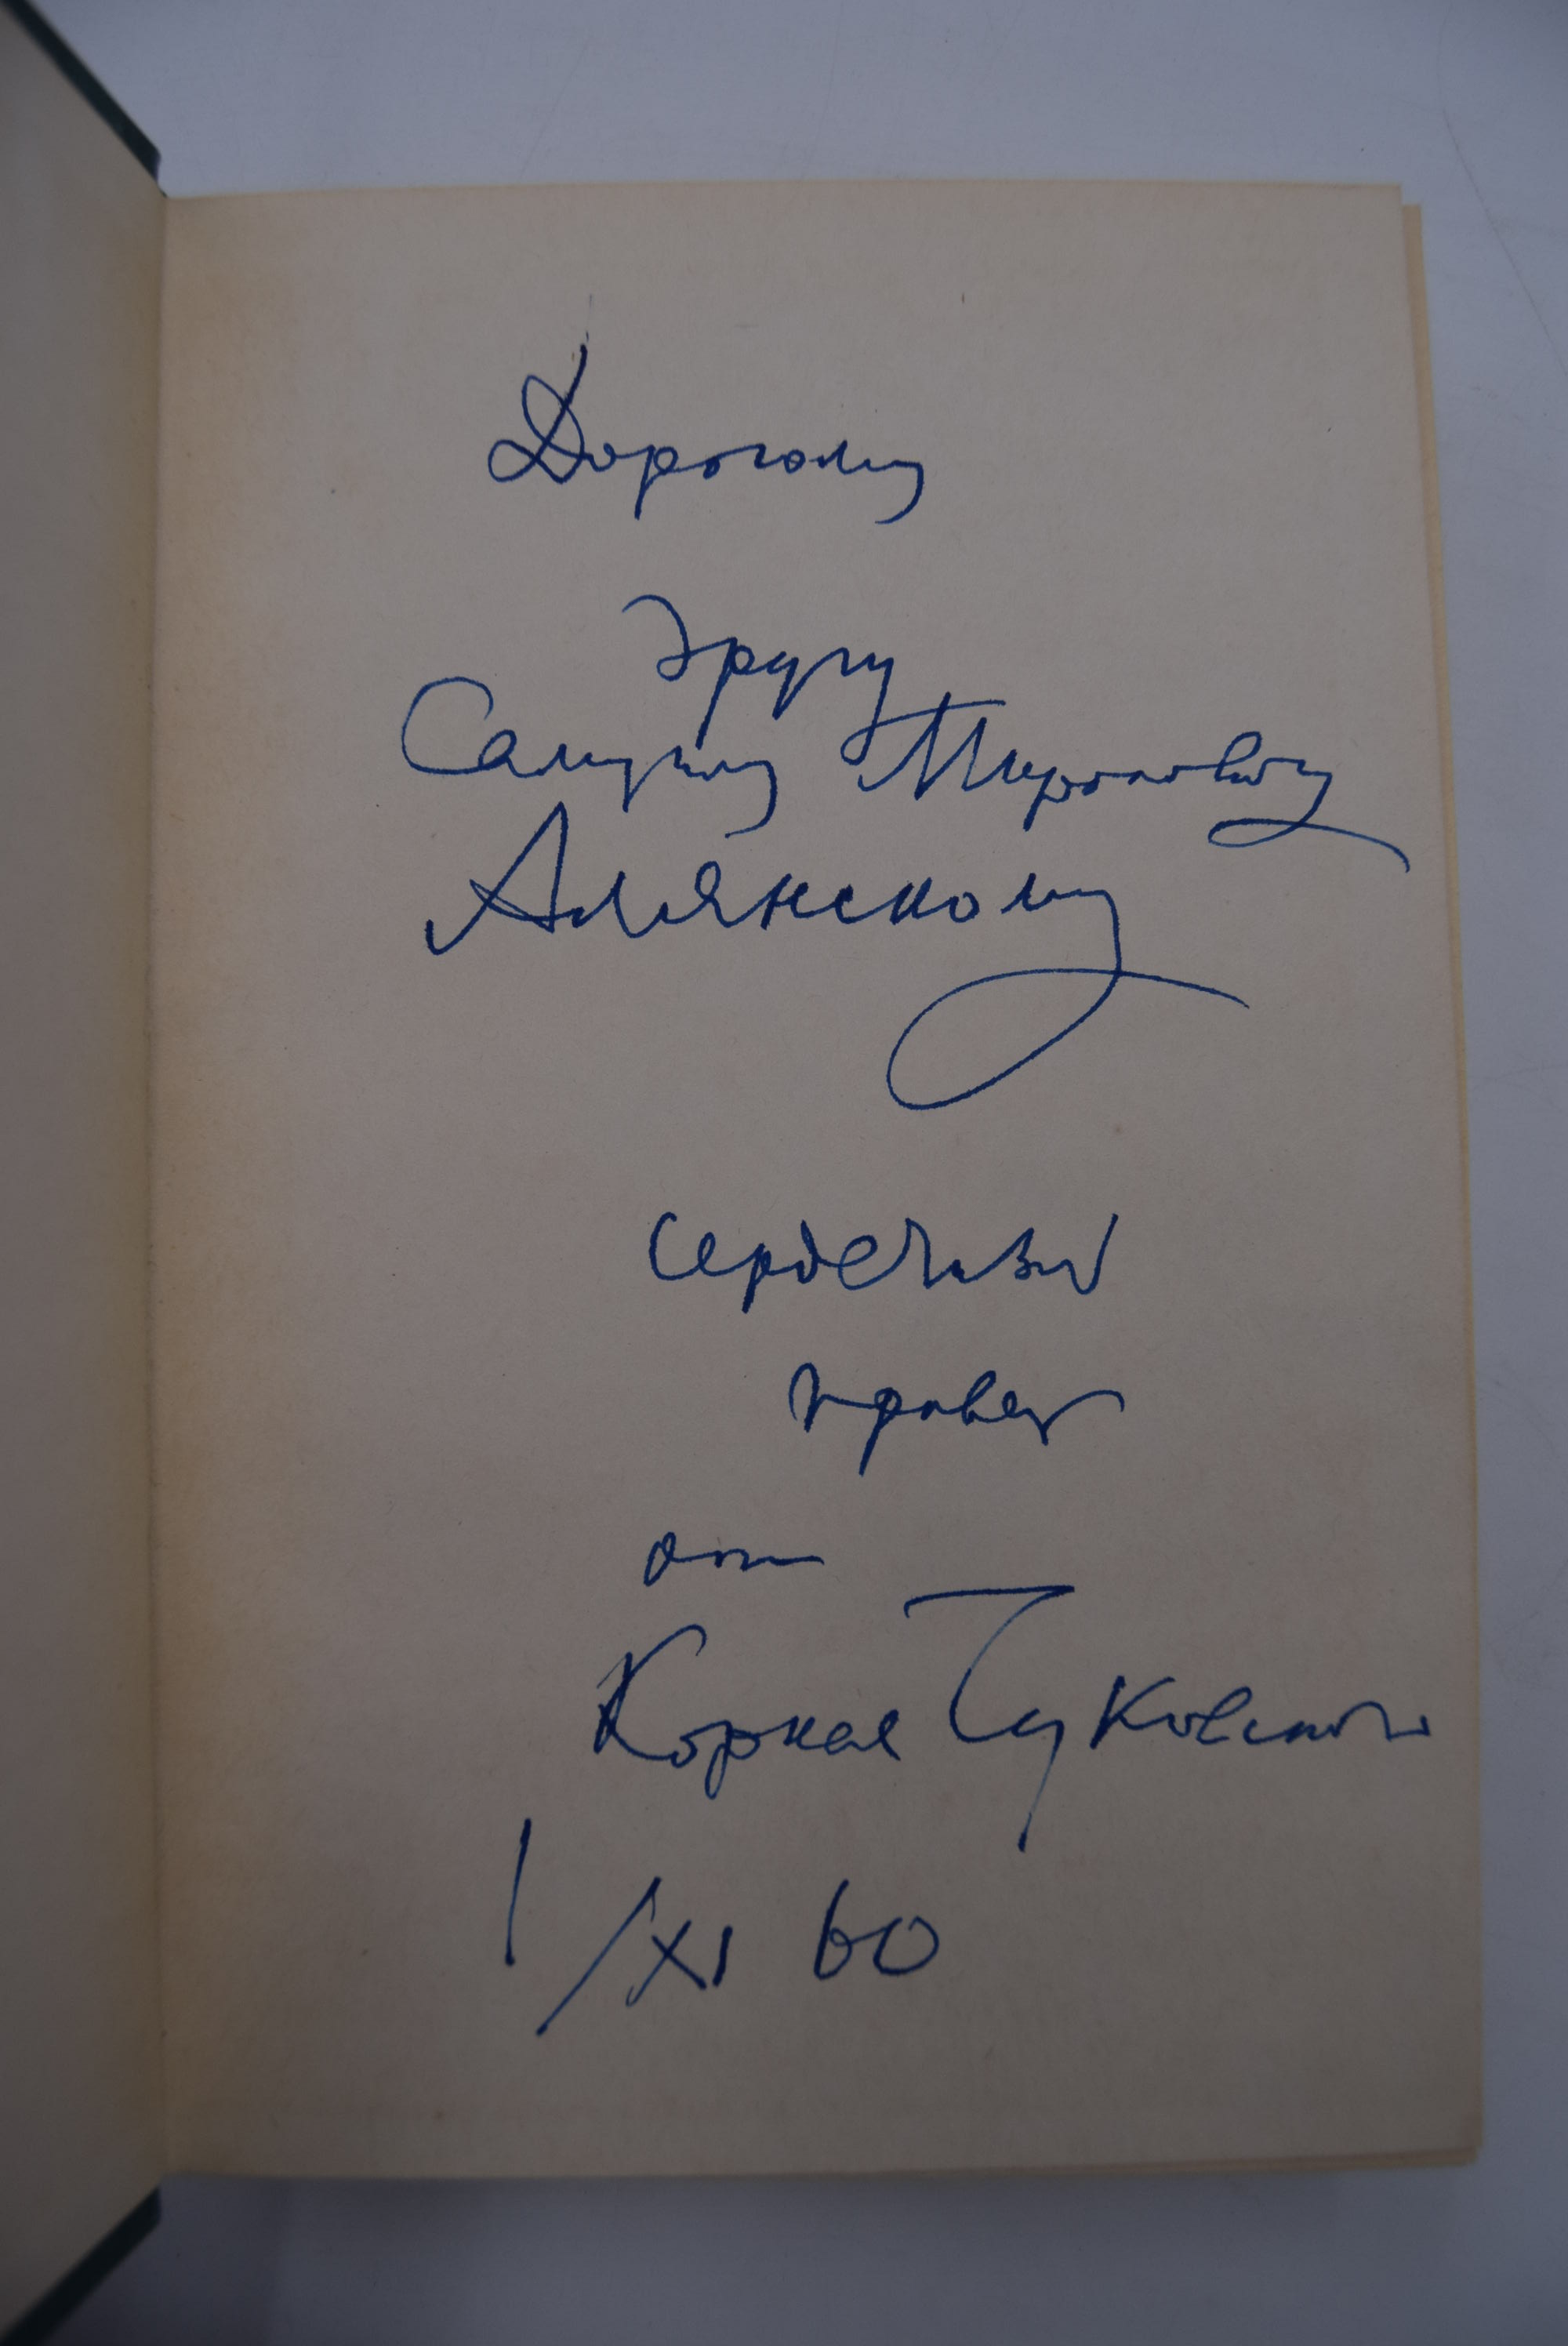 Дорогому
другу
Самуилу Мироновичу
Алянскому
сердечный
привет
от
Корнея Чуковского
1/XI 60